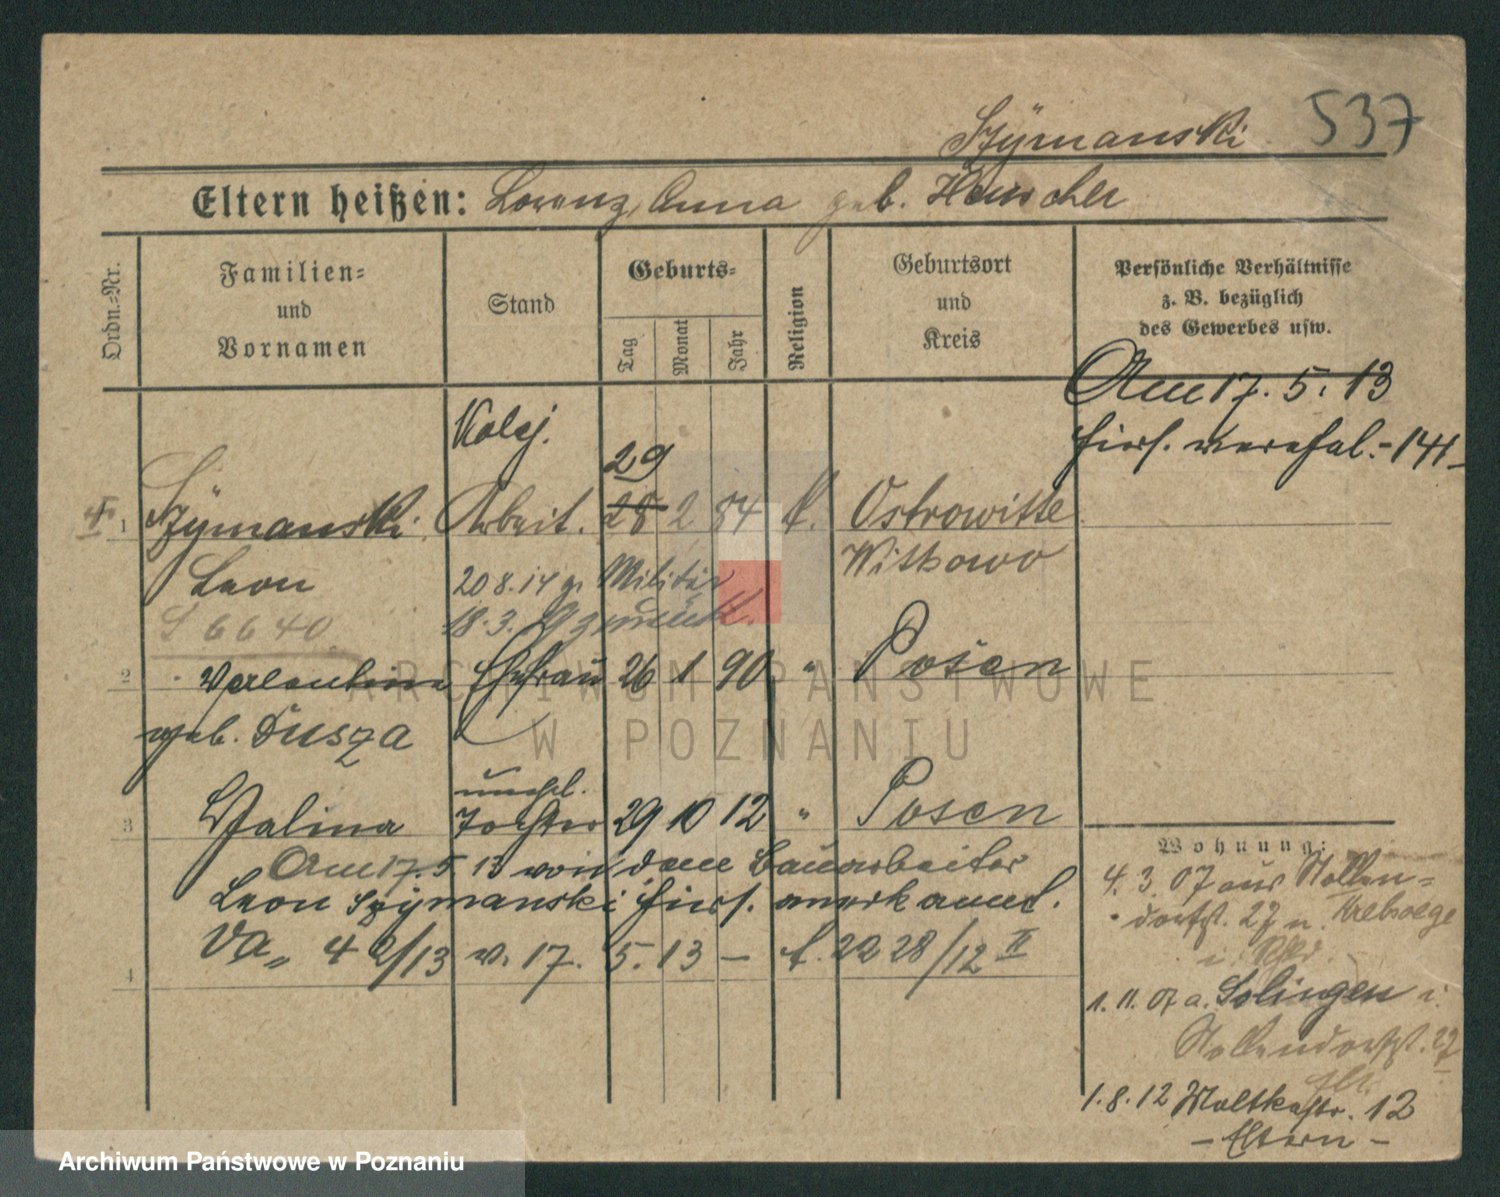 Szÿmanski 537
Eltern heißen: Lorenz, Anna geb.
Ordn.=Nr.
Familien=
und
Vornamen
Stand
Geburts=
Tag
Monat
Jahr
Religion
Geburtsort
und
Kreis
Persönliche Verhältnisse
z. B. bezüglich
des Gewerbes usw.
Am 17. 5. 13
29
1 Szÿmanski Arbeit. 28 2 84 k. Ostrowitte
Leon 20 8. 14 z. Militär Witkowo
S 6640 18. 3. 19 zurück.
2 Valentine Ehefrau 26 1 90 " Posen
geb. Dusza
unehel.
3 Halina Tochter 29 10 12 " Posen
Am 17. 5 13 von dem Bauarbeiter
Leon Szÿmanski hies. anerkannt.
4 Va " 4 2/13 v. 17. 5. 13 – 28/12 II
Wohnung:
4. 3 07 aus Stollen=
dorfst. 27 n.
1. 11. 07 a. Solingen i.
Stollendorfst. 27
1. 8. 12 Moltkestr. 12
– Eltern –
ARCHIWUM PAŃSTWOWE
W POZNANIU
Archiwum Państwowe w Poznaniu